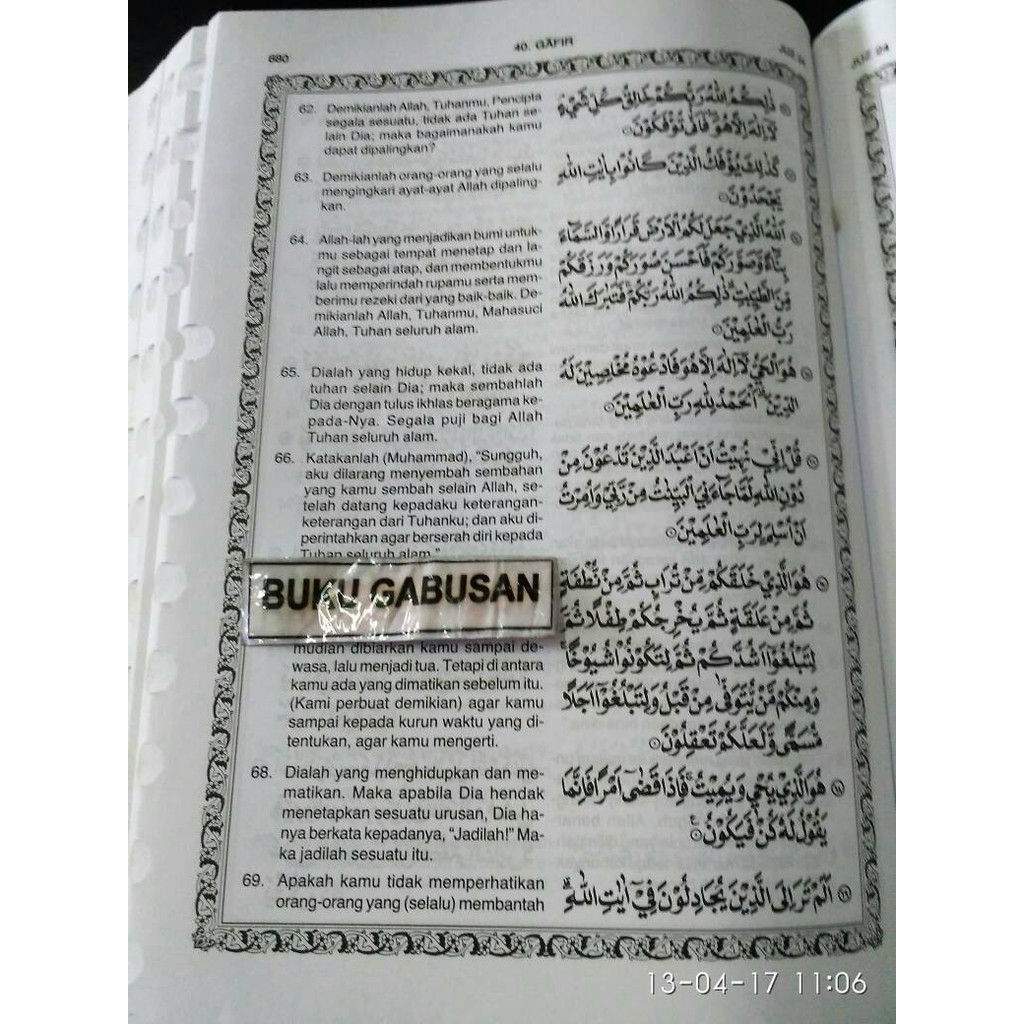 680
40. GĀFIR
62. Demikianlah Allah, Tuhanmu, Pencipta
segala sesuatu, tidak ada Tuhan se-
lain Dia; maka bagaimanakah kamu
dapat dipalingkan?
63. Demikianlah orang-orang yang selalu
mengingkari ayat-ayat Allah dipaling-
kan.
64. Allah-lah yang menjadikan bumi untuk-
mu sebagai tempat menetap dan la-
ngit sebagai atap, dan membentukmu
lalu memperindah rupamu serta mem-
berimu rezeki dari yang baik-baik. De-
mikianlah Allah, Tuhanmu, Mahasuci
Allah, Tuhan seluruh alam.
65. Dialah yang hidup kekal, tidak ada
tuhan selain Dia; maka sembahlah
Dia dengan tulus ikhlas beragama ke-
pada-Nya. Segala puji bagi Allah
Tuhan seluruh alam.
66. Katakanlah (Muhammad), "Sungguh,
aku dilarang menyembah sembahan
yang kamu sembah selain Allah, se-
telah datang kepadaku keterangan-
keterangan dari Tuhanku; dan aku di-
perintahkan agar berserah diri kepada
Tuhan seluruh alam."
BUKU GABUSAN
mudian dibiarkan kamu sampai de-
wasa, lalu menjadi tua. Tetapi di antara
kamu ada yang dimatikan sebelum itu.
(Kami perbuat demikian) agar kamu
sampai kepada kurun waktu yang di-
tentukan, agar kamu mengerti.
68. Dialah yang menghidupkan dan me-
matikan. Maka apabila Dia hendak
menetapkan sesuatu urusan, Dia ha-
nya berkata kepadanya, "Jadilah!" Ma-
ka jadilah sesuatu itu.
69. Apakah kamu tidak memperhatikan
orang-orang yang (selalu) membantah
ذٰلِكُمُ اللّٰهُ رَبُّكُمْ خَالِقُ كُلِّ شَيْءٍ
لَآ اِلٰهَ اِلَّا هُوَ فَاَنّٰى تُؤْفَكُوْنَ
كَذٰلِكَ يُؤْفَكُ الَّذِيْنَ كَانُوْا بِاٰيٰتِ اللّٰهِ
يَجْحَدُوْنَ
اَللّٰهُ الَّذِيْ جَعَلَ لَكُمُ الْاَرْضَ قَرَارًا وَّالسَّمَاۤءَ
بِنَاۤءً وَّصَوَّرَكُمْ فَاَحْسَنَ صُوَرَكُمْ وَرَزَقَكُمْ
مِّنَ الطَّيِّبٰتِ ذٰلِكُمُ اللّٰهُ رَبُّكُمْ فَتَبٰرَكَ اللّٰهُ
رَبُّ الْعٰلَمِيْنَ
هُوَ الْحَيُّ لَآ اِلٰهَ اِلَّا هُوَ فَادْعُوْهُ مُخْلِصِيْنَ لَهُ
الدِّيْنَ اَلْحَمْدُ لِلّٰهِ رَبِّ الْعٰلَمِيْنَ
قُلْ اِنِّيْ نُهِيْتُ اَنْ اَعْبُدَ الَّذِيْنَ تَدْعُوْنَ مِنْ
دُوْنِ اللّٰهِ لَمَّا جَاۤءَنِيَ الْبَيِّنٰتُ مِنْ رَّبِّيْ وَاُمِرْتُ
اَنْ اُسْلِمَ لِرَبِّ الْعٰلَمِيْنَ
هُوَ الَّذِيْ خَلَقَكُمْ مِّنْ تُرَابٍ ثُمَّ مِنْ نُّطْفَةٍ
ثُمَّ مِنْ عَلَقَةٍ ثُمَّ يُخْرِجُكُمْ طِفْلًا ثُمَّ
لِتَبْلُغُوْٓا اَشُدَّكُمْ ثُمَّ لِتَكُوْنُوْا شُيُوْخًا
وَمِنْكُمْ مَّنْ يُّتَوَفّٰى مِنْ قَبْلُ وَلِتَبْلُغُوْٓا اَجَلًا
مُّسَمًّى وَّلَعَلَّكُمْ تَعْقِلُوْنَ
هُوَ الَّذِيْ يُحْيٖ وَيُمِيْتُ فَاِذَا قَضٰٓى اَمْرًا فَاِنَّمَا
يَقُوْلُ لَهٗ كُنْ فَيَكُوْنُ
اَلَمْ تَرَ اِلَى الَّذِيْنَ يُجَادِلُوْنَ فِيْٓ اٰيٰتِ اللّٰهِ
13-04-17 11:06